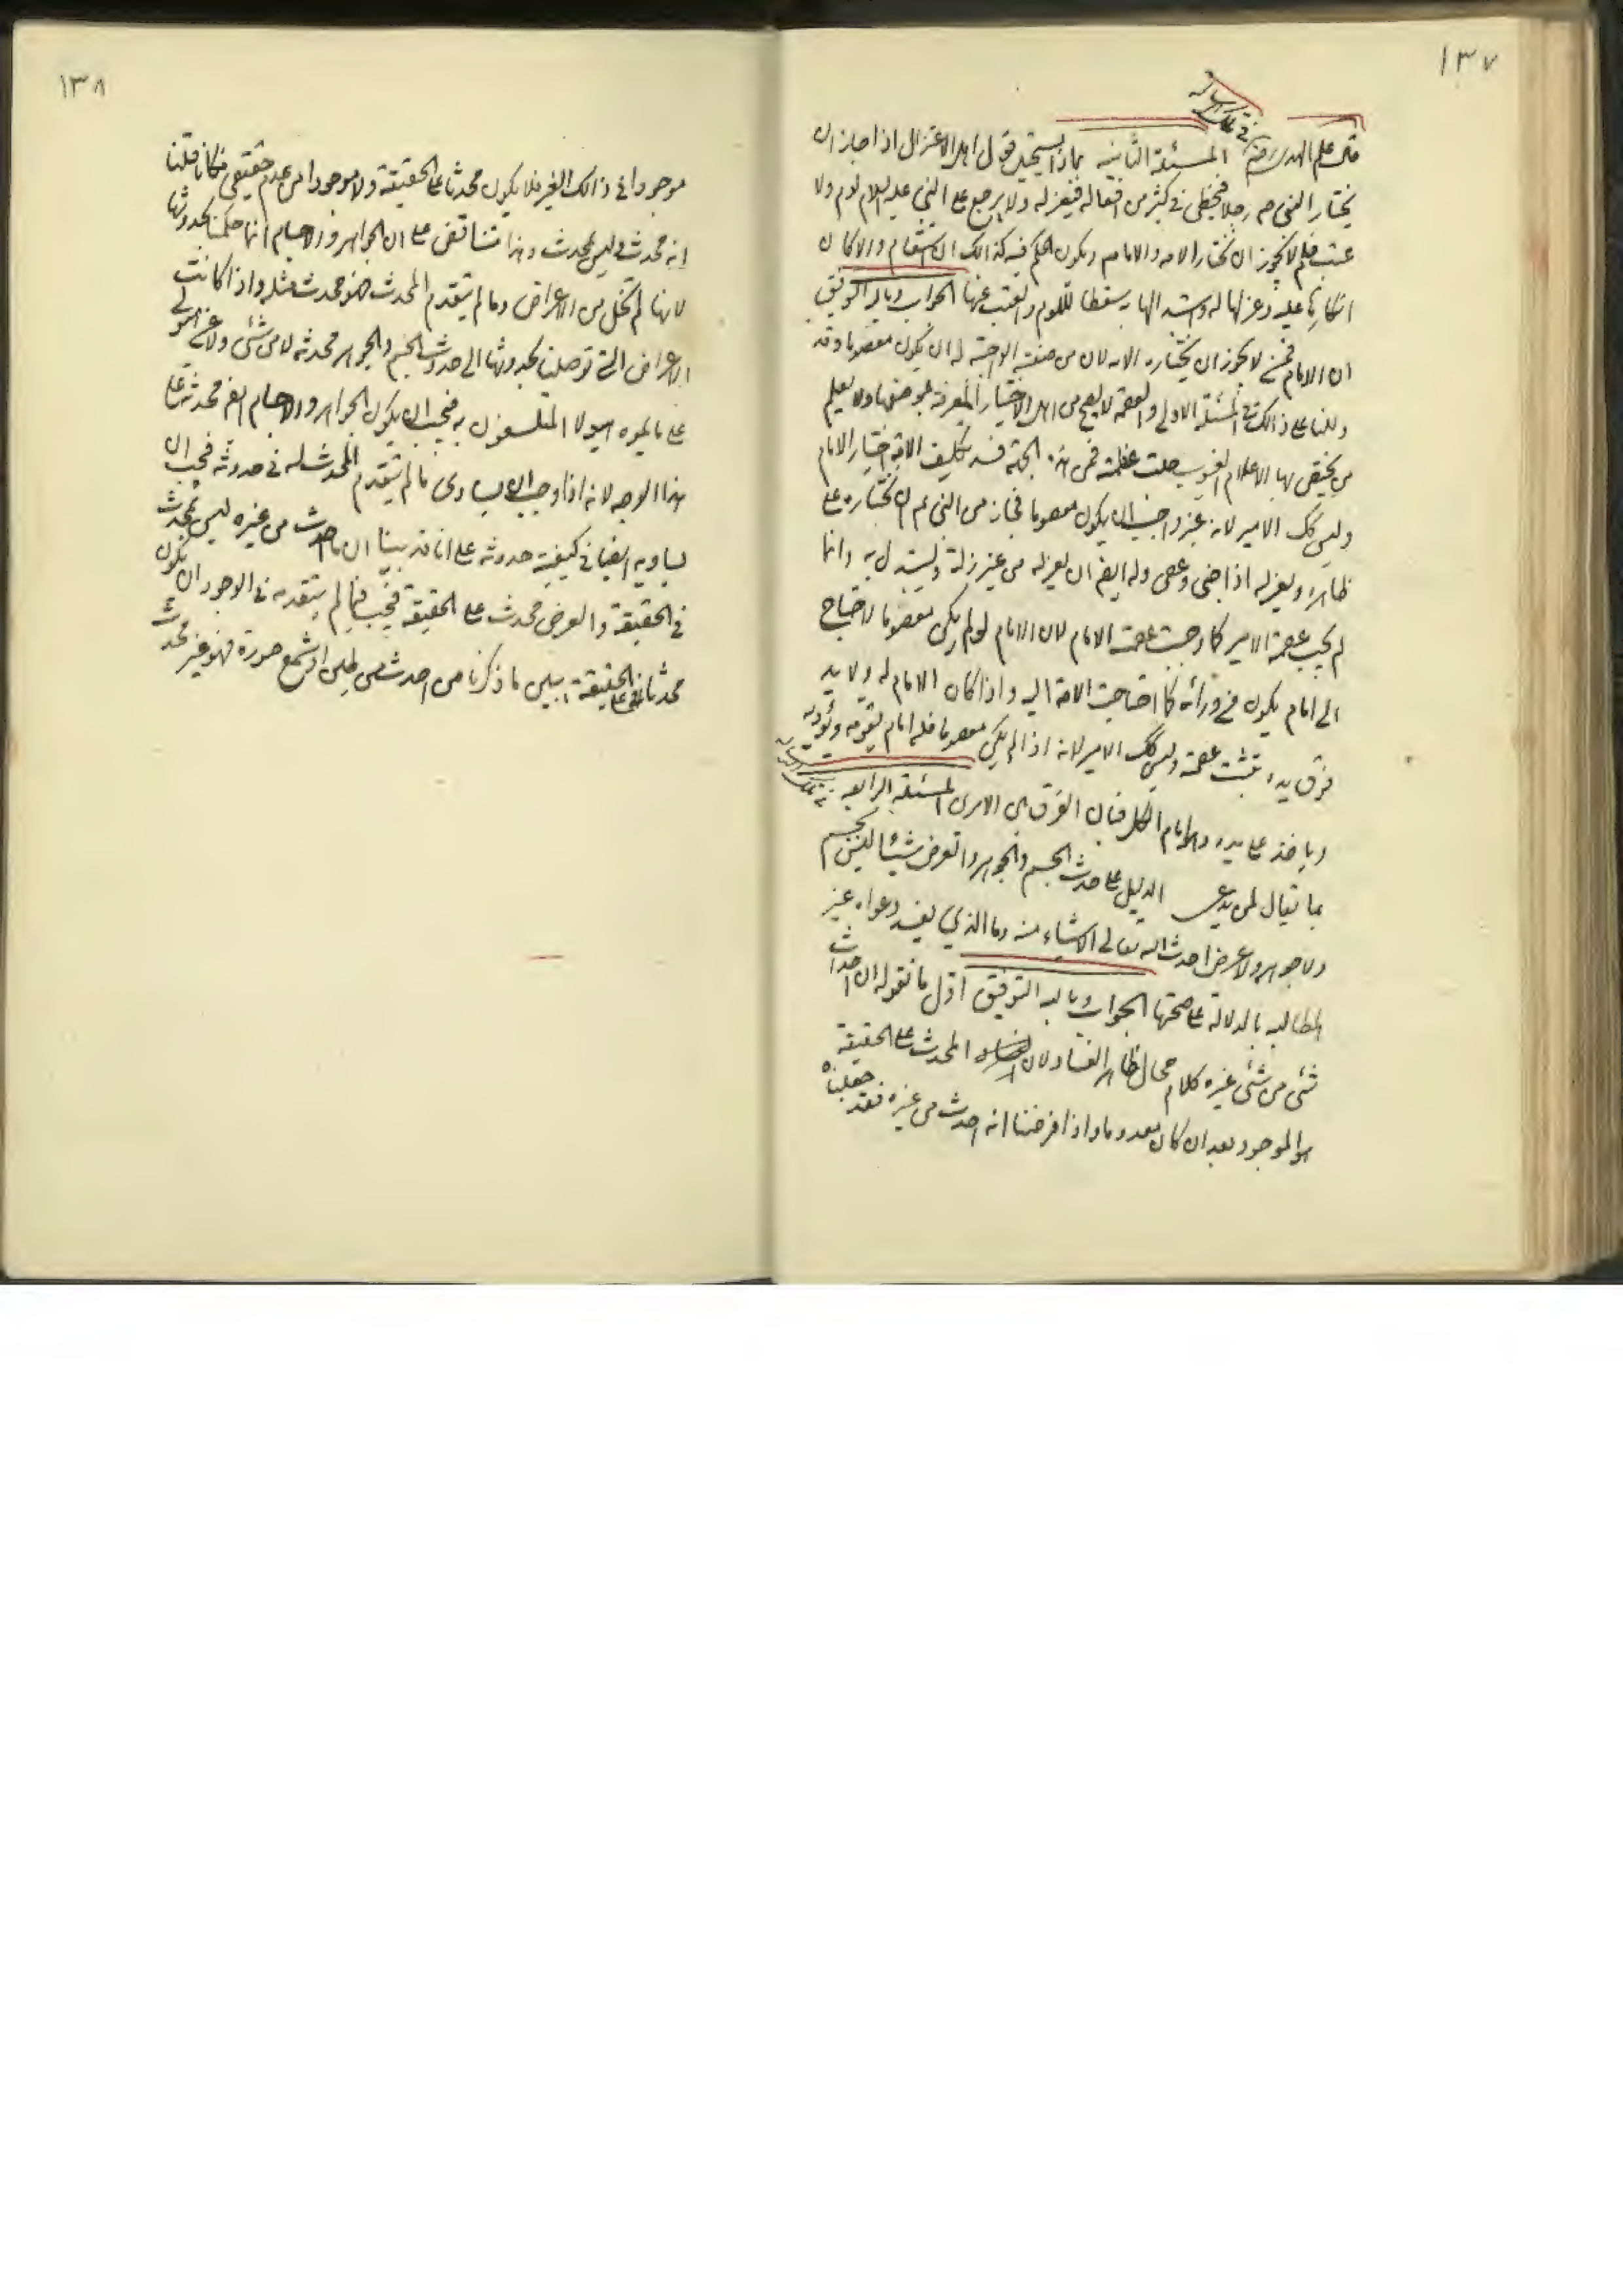 ١٣٧
في تلك الرسالة
قال علم الهدى المسئلة الثانية بماذا يستحيل قول اهل الاعتزال اذا جاز ان
يختار النبي ص رجلا فيخطئ في كثير من افعاله فيعزله ولا يرجع على النبي عليه السلام لوم ولا
عتب فلم لا يجوز ان تختار الامة الامام ويكون الحكم فيه كذالك ان استقام والا كان
انكارها عليه وعزلها له واستبدالها به مسقطا للوم والعتب عنها الجواب وبالله التوفيق
ان الامام لا يجوز ان يختاره الامة لان من صفته الواجبة له ان يكون معصوما وقد
دللنا على ذالك في المسئلة الاولى والعصمة لا يصح من اهل الاختيار المعرفة بموضعها ولا يعلم
من يختص بها الا علام الغيوب جلت عظمته فمن هذه الجهة فسد تكليف الامة اختيار الامام
وليس كك الامير لانه غير واجب ان يكون معصوما فجاز من النبي ع م ان يختاره على
ظاهره ويعزله اذا جنى وعصى وله ايض ان يعزله من غير زلة ويستبدل به وانما
لم يجب عصمة الامير كما وجبت عصمة الامام لان الامام لو لم يكن معصوما لاحتاج
الى امام يكون من ورائه كما احتاجت الامة اليه واذا كان الامام له ولا يد
فوق يده تثبت عصمته وليس كك الامير لانه اذا لم يكن معصوما فله امام يقومه ويؤدبه
وياخذ على يده وهو امام الكل فبان الفرق بين الامرين المسئلة الرابعة في تلك الرسالة
بما يقال لمن يدعى الدليل على حدث الجسم والجوهر والعرض شيئا ليس بجسم
ولا جوهر ولا عرض احدث الله تعالى الاشياء منه وما الذي يفسد دعواه غير
المطالبه بالدلالة على صحتها الجواب وبالله التوفيق اول ما نقوله ان احداث
شئ من شئ غيره كلام محال ظاهر الفساد لان المحدث على الحقيقة
هو الموجود بعد ان كان معدوما واذا فرضنا انه احدث من غيره فقد جعلناه
١٣٨
موجودا في ذالك الغير فلا يكون محدثا على الحقيقة ولا موجودا من عدم حقيقي فكانا قلنا
انه محدث وليس بمحدث وهذا متناقض على ان الجواهر والاجسام انما حكمنا بحدوثها
لانها لم تخل من الاعراض وما لم يتقدم المحدث فهو محدث مثله واذا كانت
الاعراض التي توصلنا بحدوثها الى حدوث الجسم والجوهر محدثه لا من شئ ولا عن هيولى
على ما يموه هيولا المتفلسفون به فيجب ان يكون الجواهر والاجسام ايض محدثة على
هذا الوجه لانه اذا وجب ان يساوى ما لم يتقدم المحدث له في حدوثه فيجب ان
يساويه ايضا في كيفية حدوثه على انا قد بينا ان ما احدث من غيره ليس بمحدث
في الحقيقة والعرض محدث على الحقيقة فيجب فيما لم يتقدمه في الوجود ان يكون
محدثا على الحقيقة يبين ما ذكرنا من احدث من طين او شمع صورة فهو غير محدث